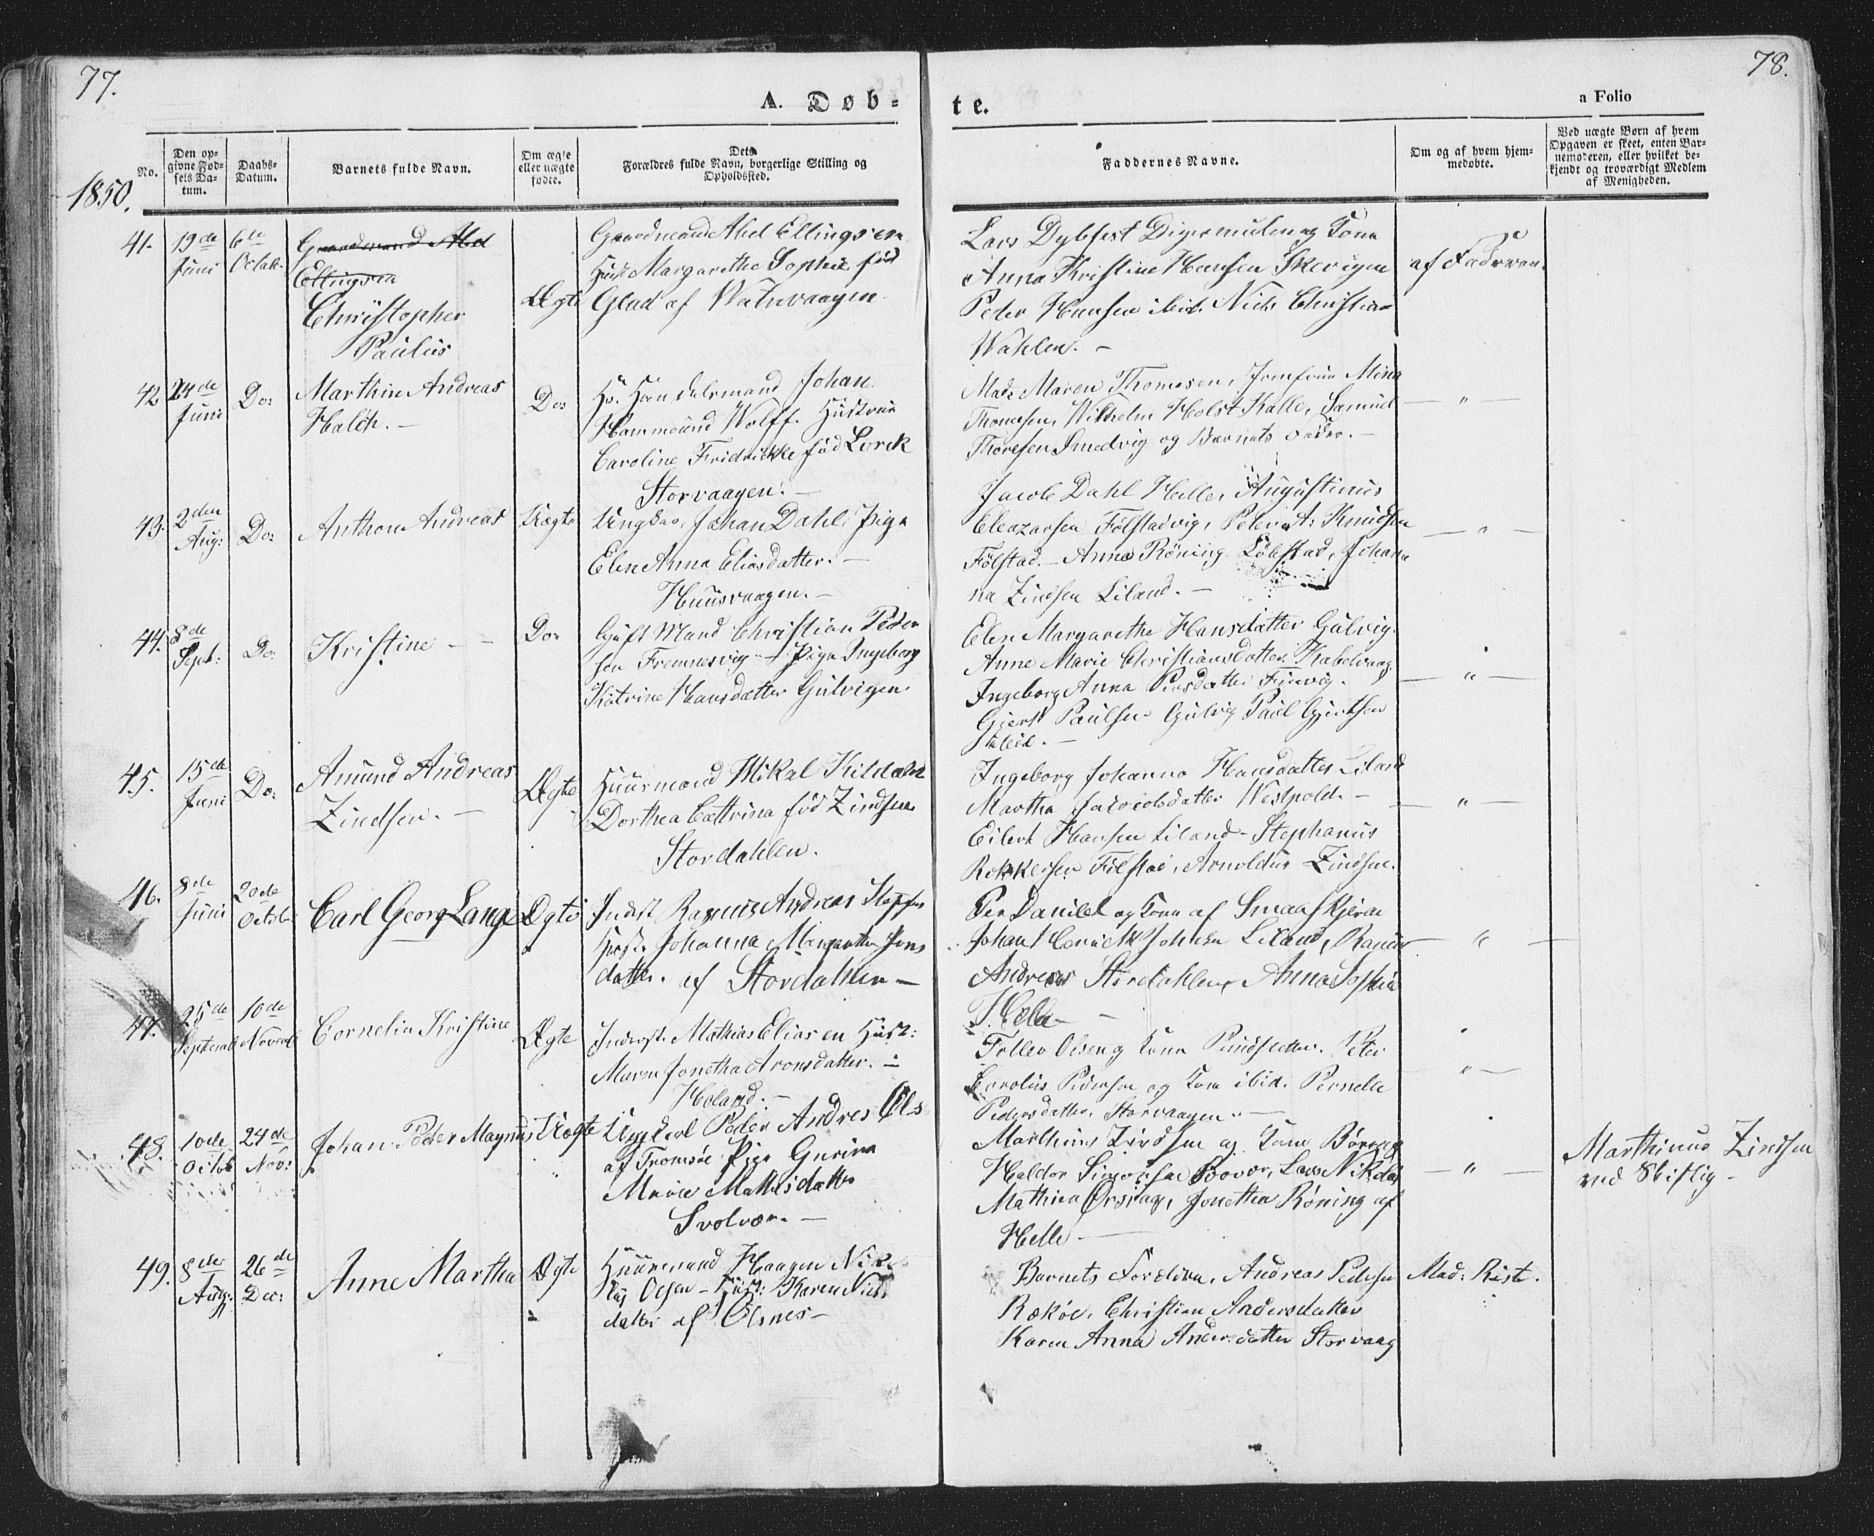 77.
78.
A. Døb-
te.
a Folio
1850.
No.
Den opgivne Fødsels Datum.
Daabs-Datum.
Barnets fulde Navn.
Om ægte eller uægte fødte.
Dets Forældres fulde Navn, borgerlige Stilling og Opholdssted.
Faddernes Navne.
Om og af hvem hjemmedøbte.
Ved uægte Børn af hvem Opgaven er skeet, enten Barnemoderen, eller hvilket bekjendt og troværdigt Medlem af Menigheden.
41. 19de Juni
6te Octob:
Gaardmand Abel
Ellingsen
Christopher
Paulus
Ægte
Gaardmand Abel Ellingsen
Hust: Margarethe Sophie fød
Glad af Watnvaagen
Lars Dybfest Digermulen og Kona
Anna Kristine Hansen
Peder Hansen ibid. Niels Christian
Wahlen. -
af Faderen.
42 24de Juni
Do:
Marthin Andreas
Halch. -
Do:
Hr. Handelsmand Johan
Hammound Wolff. Hustrue
Caroline Fridrikke fød Lorck
Storvaagen. -
Mad: Maren Thomesen, Jomfrue Mina
Thomesen, Wilhelm Holst Kalle, Samuel
Thoresen Smedvig og Barnets Fader. -
- " -
43. 2den Aug:
Do:
Anthon Andreas
Uægte
Ungkar. Johan Dahl. Pige
Elen Anna Eliasdatter. -
Huusvaagen. -
Jacob Dahl Helle, Augustinus
Eleazarsen Følstadvig, Peter A: Knudsen
Følstad. - Anna Röning Følstad, Johan-
na Zindsen Liland. -
- " -
44. 8de Sept:
Do:
Kristine -
Do:
Gift Mand Christian Peder
sen Fremnesvig - Pige Ingeborg
Katrine Hansdatter Gulvigen
Elen Margarethe Hansdatter Gulvig.
Anne Marie Christiansdatter Kabelvaag
Ingeborg Anna
Gjert Paulsen Gulvig Paul Gjertsen
ibid. -
- " -
45. 15de Juni
Do:
Amund Andreas
Zindsen. -
Ægte
Huusmand Mikal Kildahl
Dorthea Cattrina fød Zindsen
Stordahlen.
Ingeborg Johanna Hansdatter Liland
Martha Jacobsdatter Westpold. -
Eilert Hansen Liland - Stephanus
Følstad, Arnoldus Zindsen.
- " -
46. 8de Juni
20de Octob:
Carl Georg Lange
Ægte
Inderst Rasmus Andreas
Hust: Johanna Margrethe Jens
datter. af Stordahlen -
Per Daniel og Kona af Smaaskjæran
Johan Johnsen Liland, Rasmus
Andreas Stordahlen, Anna Sophia
Helle -
- " -
47. 25de Septemb
10de Novemb
Cornelia Kristine
Ægte
Inderst. Mathias Eliasen Hust:
Maren Jonetha Aronsdatter. -
Høland. -
Tollev Olsen og Kona Peter
Carolius Pedersen og Kona ibid. Pernelle
Pedersdatter, Storvaagen. -
- " -
48. 10de Octob
24de Nov:
Johan Peder Magnus
Uægte
Ungkarl Peder Andres Ols
af Tromsøe Pige Gurina
Marie Mathisdatter
Svolvær. -
Marthinus Zindsen og Kona
Haldor Simonsen
Mathisa Ørsnæs, Jonetha Röning af
Helle -
- " -
Marthinus Zindsen
ved Skiftlig -
49. 8de Aug:
26de Dec:
Anne Martha
Ægte
Huusmand Haagen Niko
laj Olsen - Hust: Karen Niels
datter af Ølsnes -
Barnets Forældre, Andreas Pedersen
Rækøe, Christian Andersdatter
Karen Anna Andersdatter Storvaag
Mad: Rist.